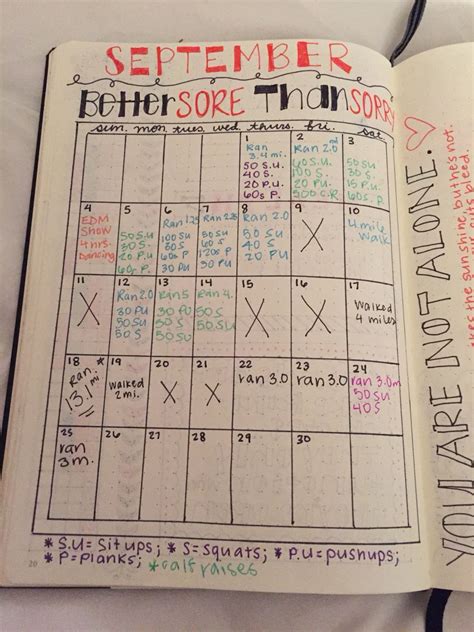 SEPTEMBER
Better SORE Than SORRY
sun. mon. tues. wed. thurs. fri. sat.
1
Ran
3.4 mi.
50 S.U.
40 S.
15 P.U.
60s P.
2
Ran 2.0
60 S.U.
100 S.
20 P.U.
500 C.R.
3
50 SU
30 S.
15 PU
60s P.
4
EDM
Show
4 hrs.
Dancing
5
50 S.U
30 S.
20 P.U
60s P.
6
Ran 1.25
100 SU
50 S
60s P
30 PU
7
50 SU
60 S
120s P
30 PU
8
Ran 2.0
50 SU
40 S
20 PU
9
X
10
4 mile
walk
11
X
12
Ran 2.0
30 PU
50 SU
50 S
13
Ran 5
30 PU
50 SU
50 S
14
Ran 4.
15 PU
50 SU
50 S
15
X
16
X
17
walked
4 miles
18 *
Ran
13.1 mi
19
walked
2 mi.
20
X
21
X
22
ran 3.0
23
ran 3.0
24
ran 3.0m
50 SU
40 S
25
ran
3 m.
26
27
28
29
30
* S.U = situps; * S = squats; * P.U = pushups;
* P = planks; * calf raises
20
YOU ARE NOT ALONE.
the sunshine, but he's not.